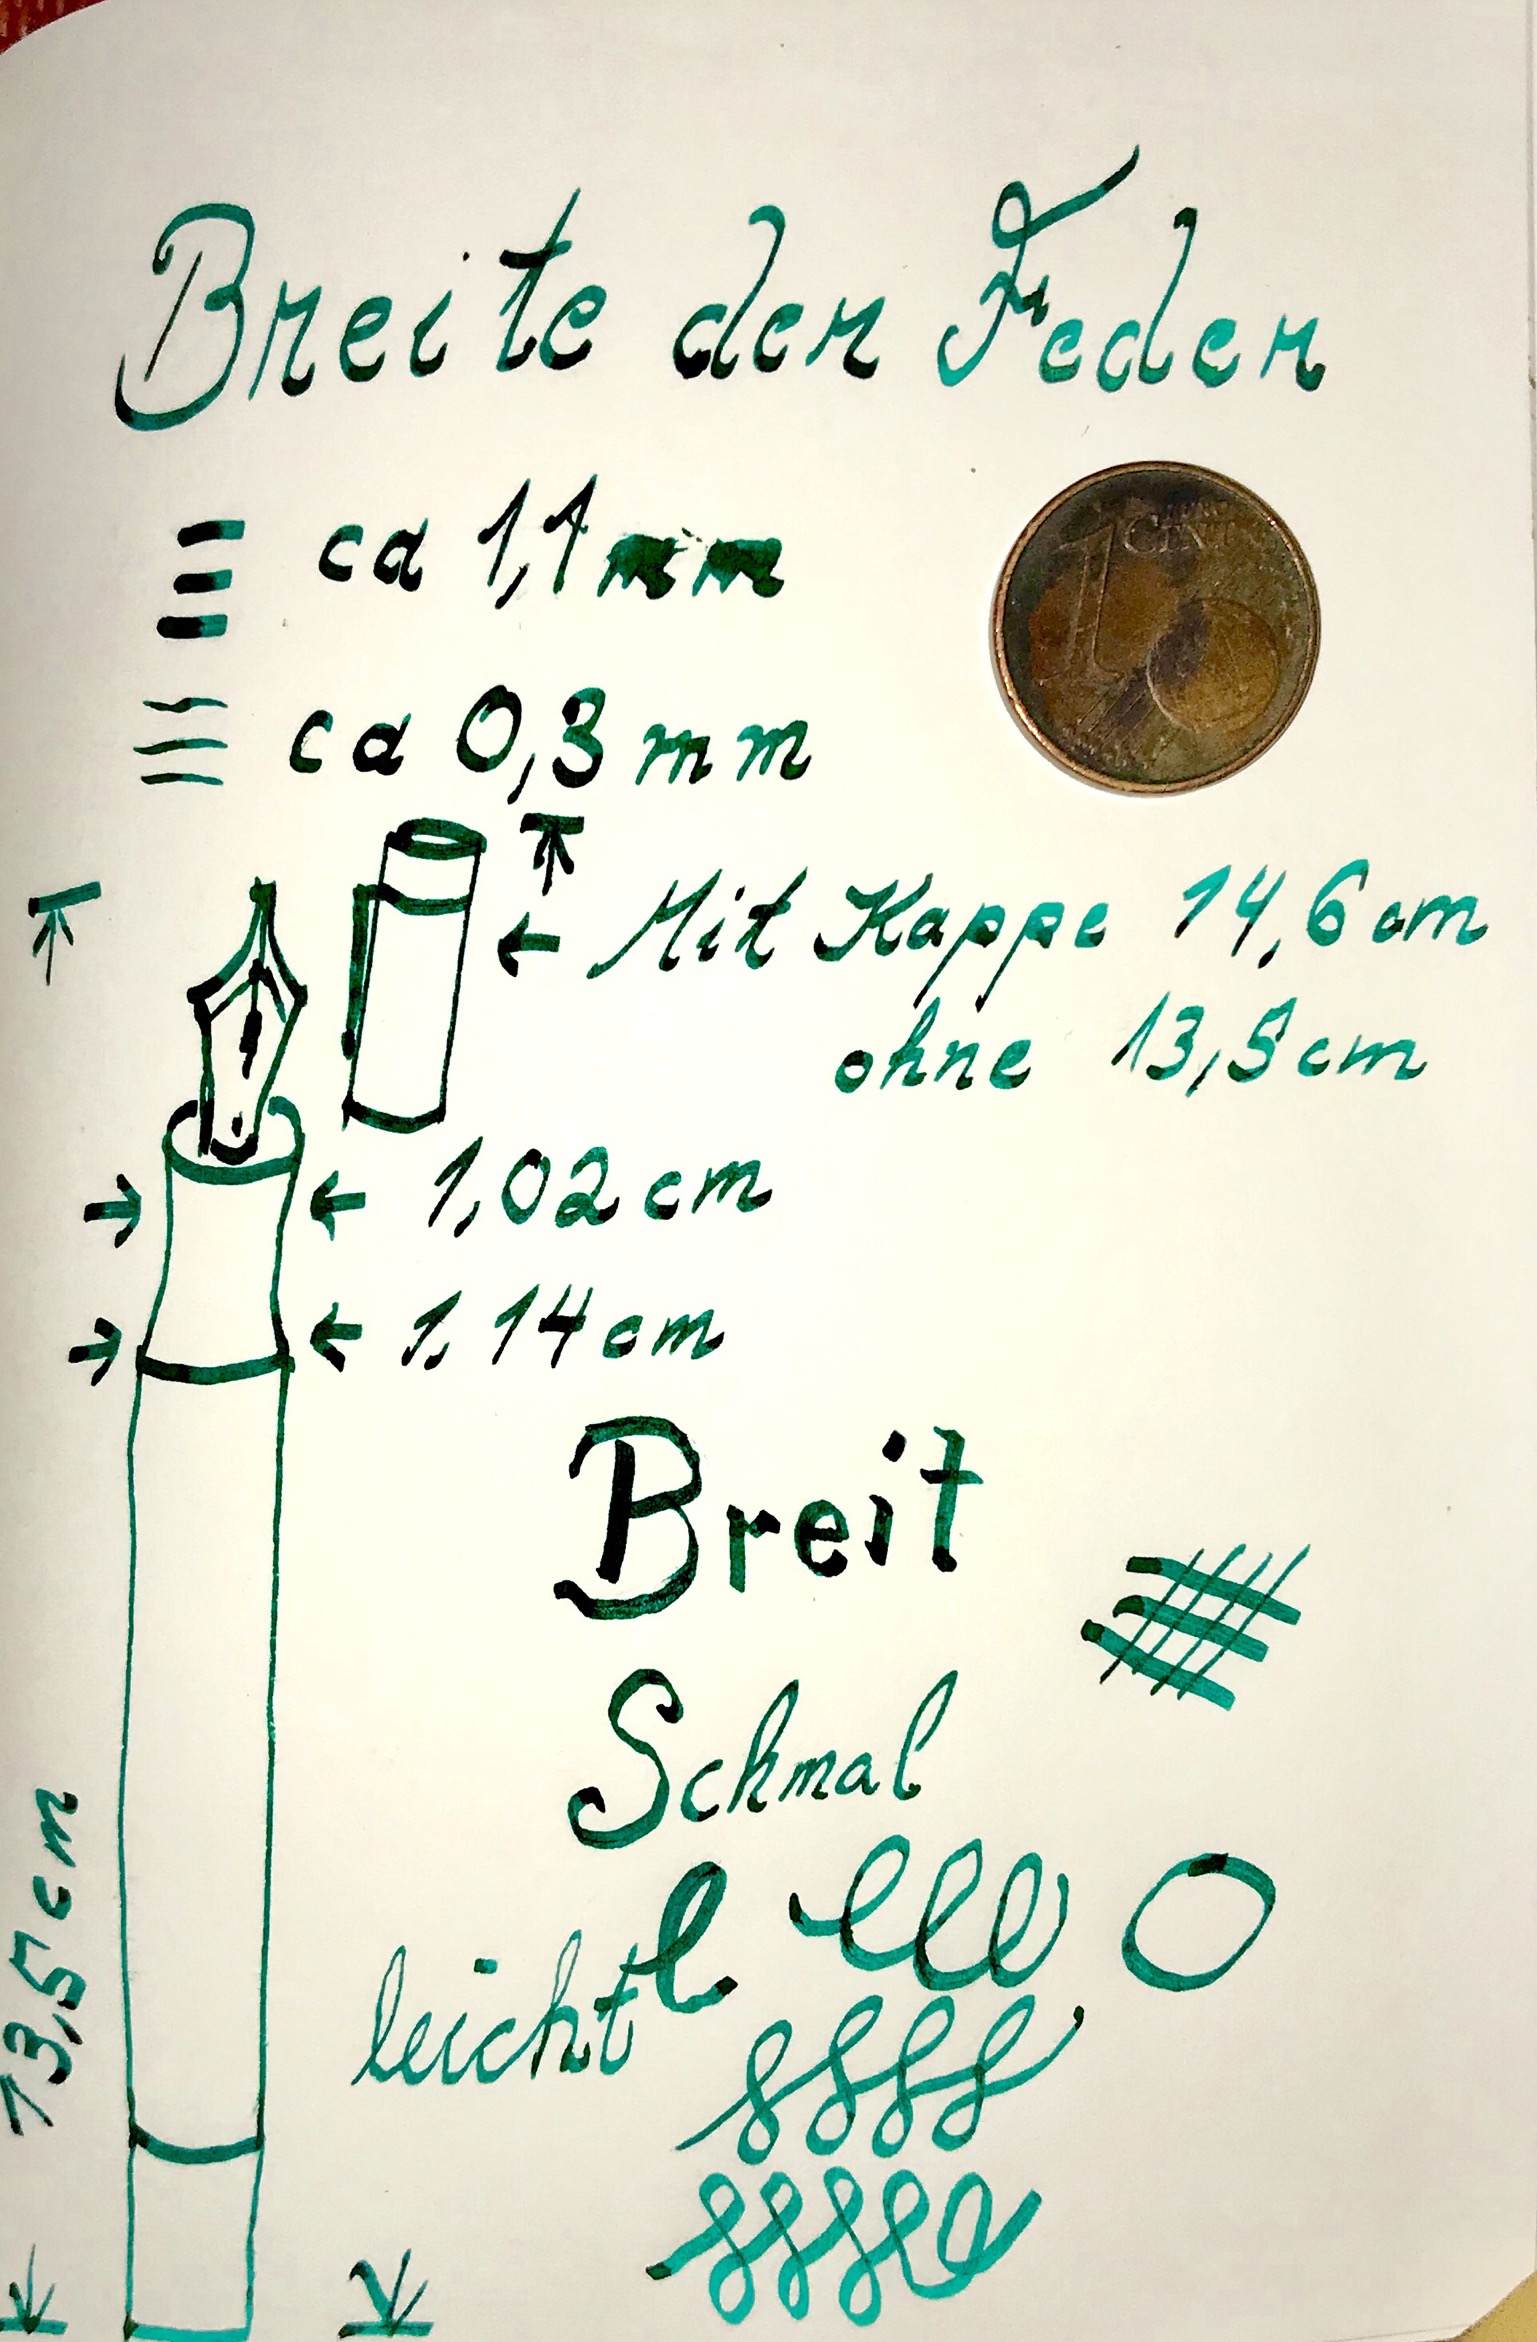 Breite der Feder
ca 1,1mm
1 CENT
ca 0,3mm
Mit Kappe 14,6cm
ohne 13,5cm
1,02cm
1,14cm
Breit
Schmal
l lll O
leicht
13,5cm